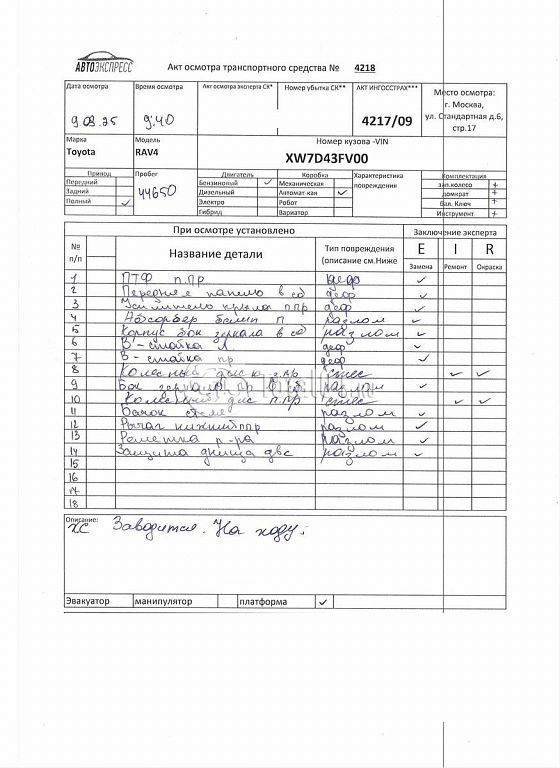 АВТОЭКСПРЕСС
Акт осмотра транспортного средства № 4218
Дата осмотра Время осмотра Акт осмотра эксперта СК* Номер убытка СК** АКТ ИНГОССТРАХ*** Место осмотра:
г. Москва,
ул. Стандартная д.6,
стр.17
9.09.25 9:40 4217/09
Марка Модель Номер кузова -VIN
Toyota RAV4 XW7D43FV00
Привод Пробег Двигатель Коробка Характеристика повреждения Комплектация
Передний 44650 Бензиновый ✓ Механическая зап.колесо +
Задний Дизельный Автомат-кая ✓ домкрат +
Полный ✓ Электро Робот бал. Ключ +
Гибрид Вариатор Инструмент +
При осмотре установлено Заключение эксперта
№ п/п Название детали Тип повреждения (описание см.Ниже E I R
Замена Ремонт Окраска
1 ПТФ п.пр деф ✓
2 Передняя панель в сб деф ✓
3 Усилитель крыла ппр деф ✓
4 Абсорбер бампп П разлом ✓
5 Корпус бок зеркала в сб разлом ✓
6 В-стойка Л. деф ✓
7 В-стойка пр деф ✓
8 Колесный диск з.пр стес ✓ ✓
9 Бок зеркало пр в сб разлом ✓
10 Колесный дис ппр стес ✓ ✓
11 Бачок разлом ✓
12 Рычаг нижний ппр разлом ✓
13 Решетка р-ра разлом ✓
14 Защита днища двс разлом ✓
15
16
17
18
Описание:
ХС Заводится. На ходу.
Эвакуатор манипулятор платформа ✓